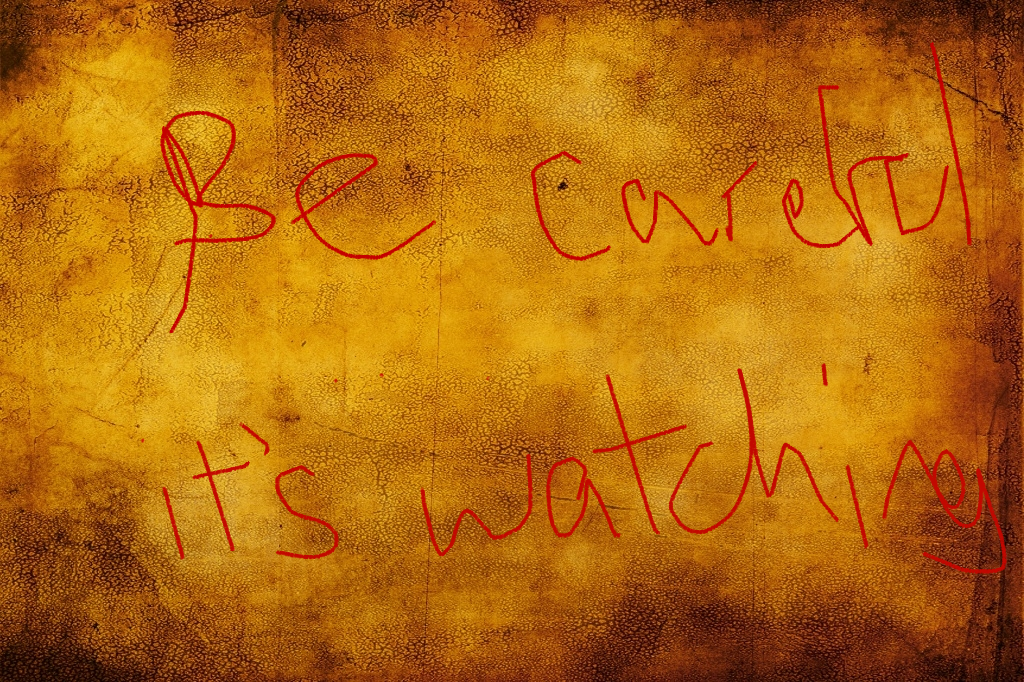 Be careful
it's watching